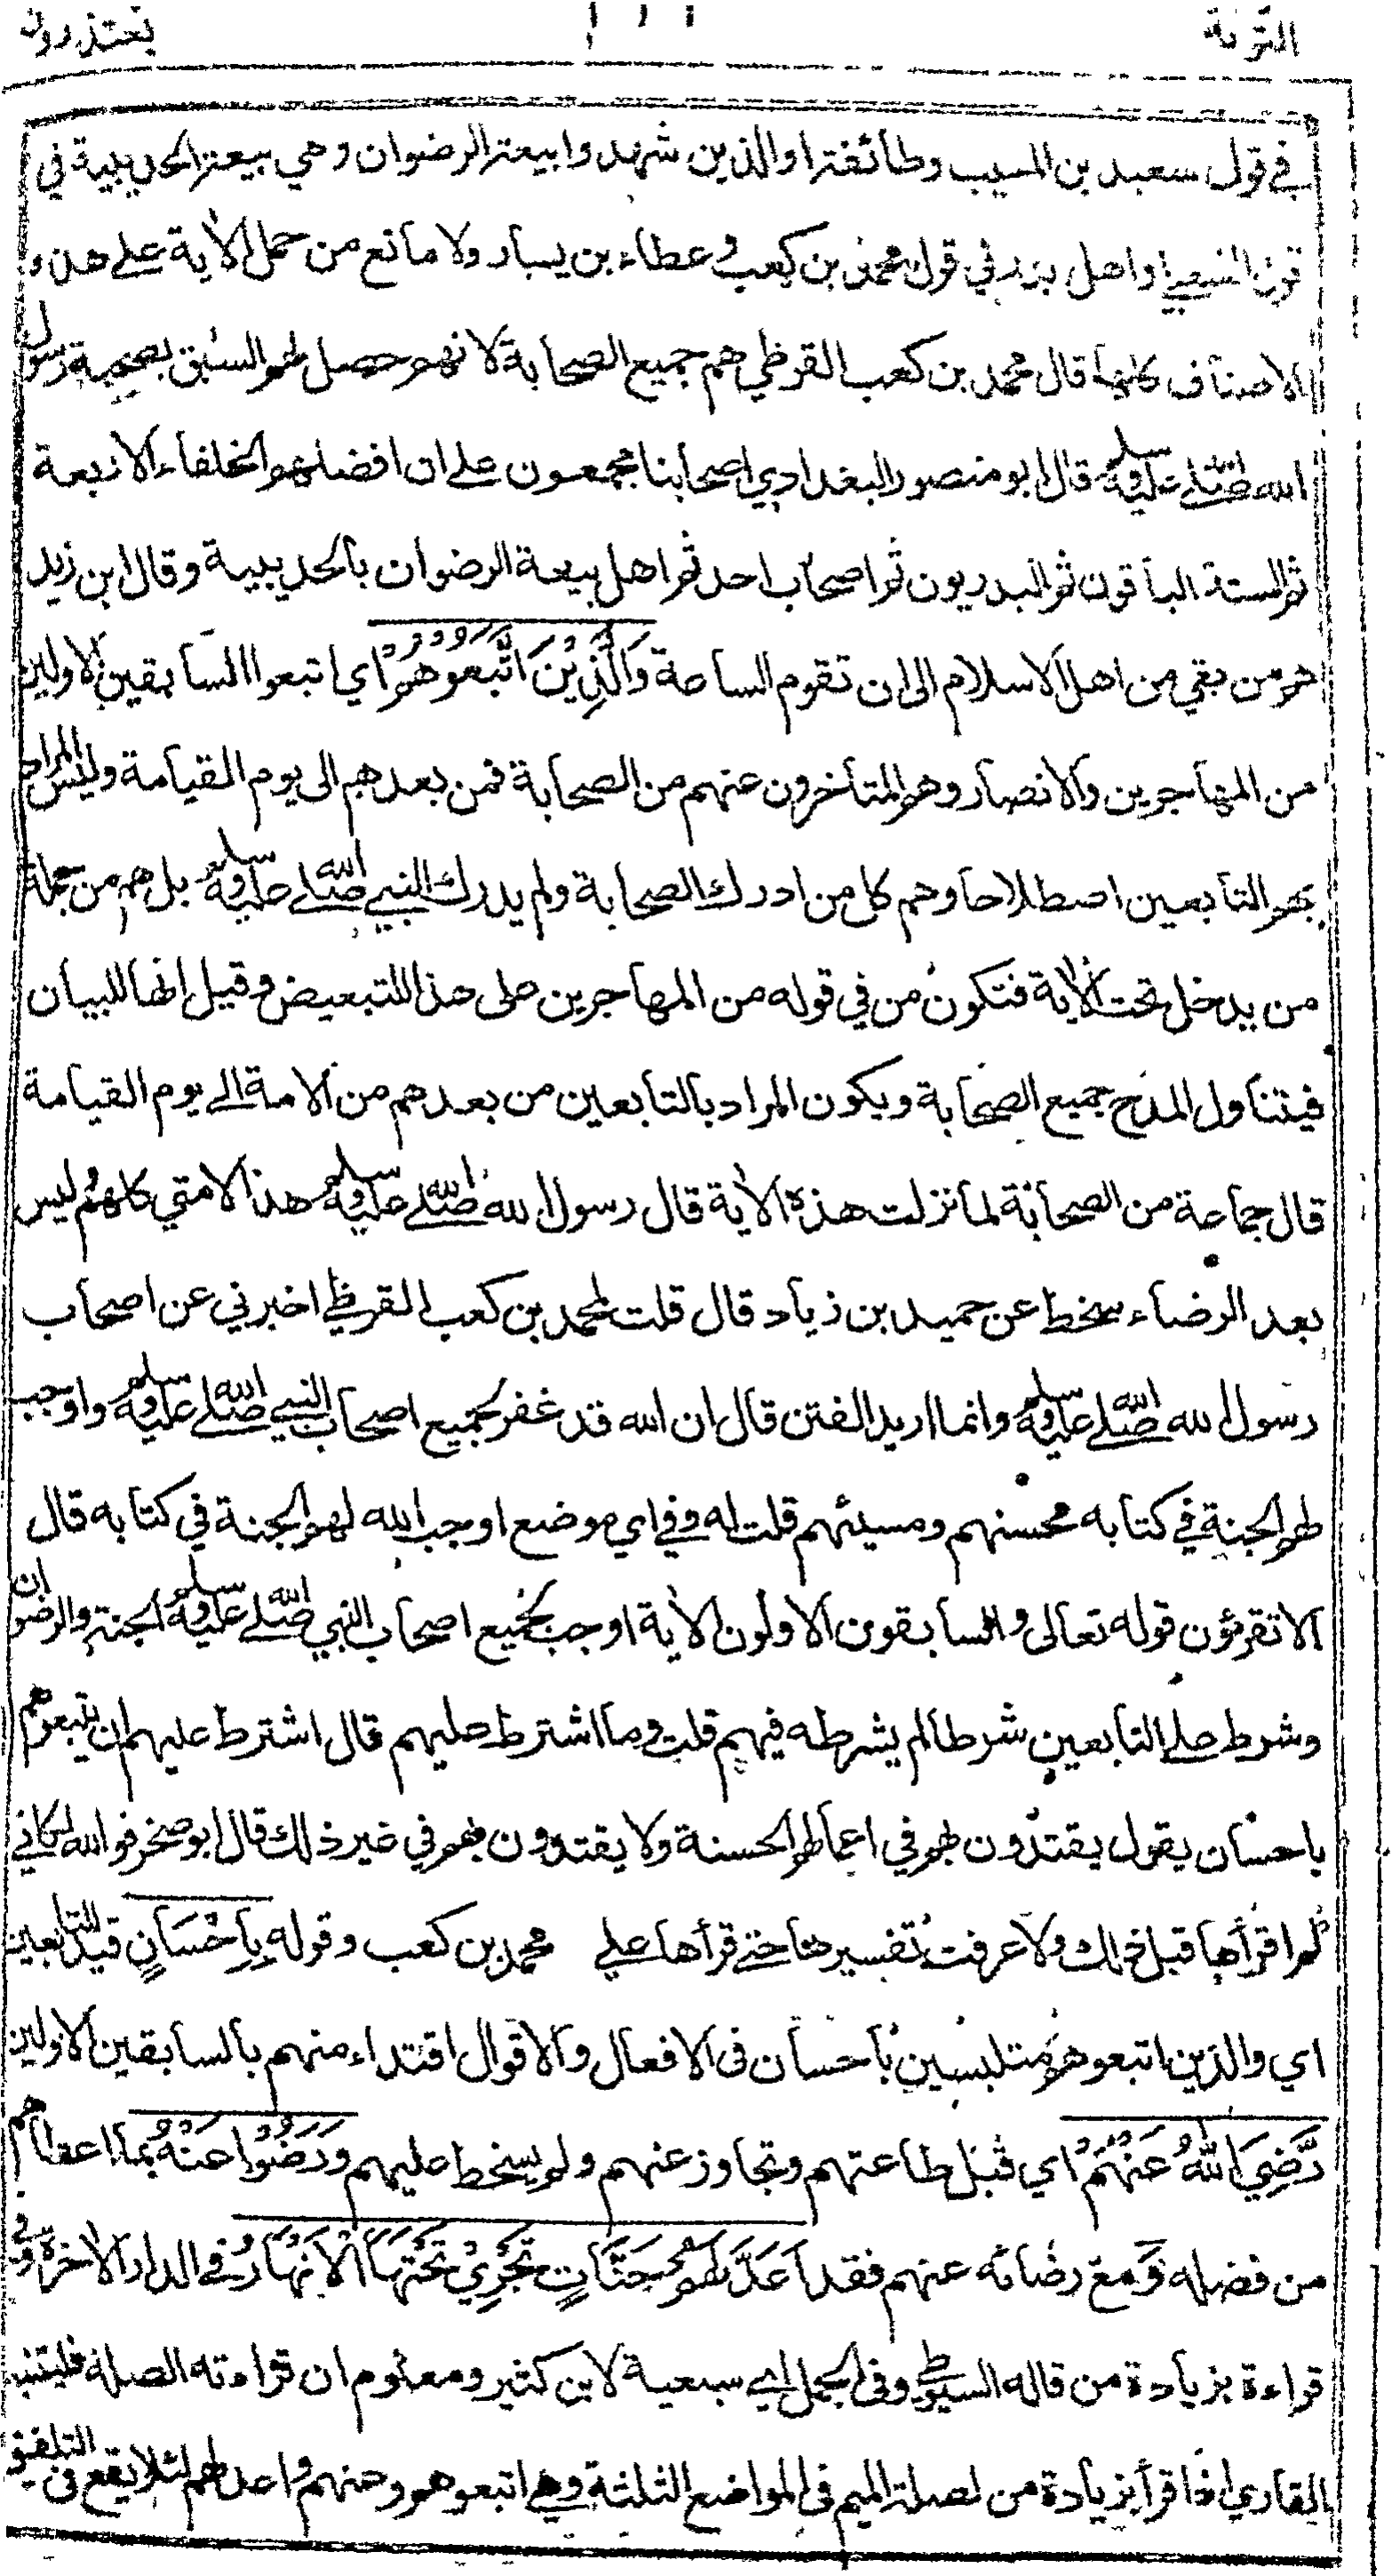 التوبة يعتذرون
في قول سعيد بن المسيب وطائفة او الذين شهدوا بيعة الرضوان وهي بيعة الحديبية في
قول الشعبي او اهل بدر في قول محمد بن كعب وعطاء بن يسار ولا مانع من حمل الاٰية علے هذه
الاصناف كلها قال محمد بن كعب القرظي هم جميع الصحابة لانهم حصل لهم السبق بصحبة رسول
الله صلى الله عليه وسلم قال ابو منصور البغدادي اصحابنا مجمعون على ان افضلهم الخلفاء الاربعة
ثم الستة الباقون ثم البدريون ثم اصحاب احد ثم اهل بيعة الرضوان بالحديبية وقال ابن زيد
هم من بقي من اهل الاسلام الى ان تقوم الساعة وَالَّذِيْنَ اتَّبَعُوْهُمْ اي اتبعوا السابقين الاولين
من المهاجرين والانصار وهم المتأخرون عنهم من الصحابة فمن بعدهم الى يوم القيامة وليس المراد
بهم التابعين اصطلاحا وهم كل من ادرك الصحابة ولم يدرك النبي صلى الله عليه وسلم بل هم من جملة
من يدخل تحت الاٰية فتكون من في قوله من المهاجرين على هذا للتبعيض وقيل انها للبيان
فيتناول المدح جميع الصحابة ويكون المراد بالتابعين من بعدهم من الامة الے يوم القيامة
قال جماعة من الصحابة لما نزلت هذه الاٰية قال رسول الله صلى الله عليه وسلم هذا لامتي كلهم وليس
بعد الرضاء سخط عن حميد بن زياد قال قلت لمحمد بن كعب القرظے اخبرني عن اصحاب
رسول الله صلى الله عليه وسلم وانما اريد الفتن قال ان الله قد غفر لجميع اصحاب النبي صلى الله عليه وسلم واوجب
لهم الجنة في كتابه محسنهم ومسيئهم قلت له وفي اي موضع اوجب الله لهم الجنة في كتابه قال
الا تقرؤن قوله تعالى والسابقون الاولون الاٰية اوجب لجميع اصحاب النبي صلى الله عليه وسلم الجنة والرضوان
وشرط على التابعين شرطا لم يشرطه فيهم قلت وما اشترط عليهم قال اشترط عليهم ان يتبعوهم
باحسان يقول يقتدون بهم في اعمالهم الحسنة ولا يقتدون بهم في غير ذلك قال ابو صخر فوالله لكاني
لم اقرأها قبل ذلك ولا عرفت تفسيرها حتے قرأها علي محمد بن كعب وقوله بِاِحْسَانٍ قيد للتابعين
اي والذين اتبعوهم متلبسين باحسان فى الافعال والاقوال اقتداء منهم بالسابقين الاولين
رَّضِيَ اللّٰهُ عَنْهُمْ اي قبل طاعتهم وتجاوز عنهم ولم يسخط عليهم وَرَضُوْا عَنْهُ بما اعطاهم
من فضله وَمع رضائه عنهم فقد اَعَدَّ لَهُمْ جَنَّاتٍ تَجْرِيْ تَحْتَهَا الْاَنْهَارُ في الدار الاخرة وفي
قراءة بزيادة من قاله السيوطے وفى الجمل اي سبعية لابن كثير ومعلوم ان قراءته الصلة فليتنبه
القاري اذا قرأ بزيادة من لصلة الميم فى المواضع الثلثة وهي اتبعوهمو وعنهم واعد لهم لئلا يقع فى التلفيق